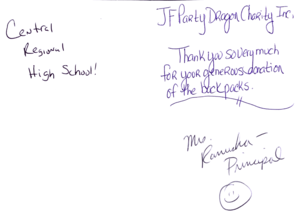 Central
Regional
High School!
JF Party Dragon Charity Inc,
Thank you so very much
for your generous donation
of the backpacks.
Mrs.
Principal